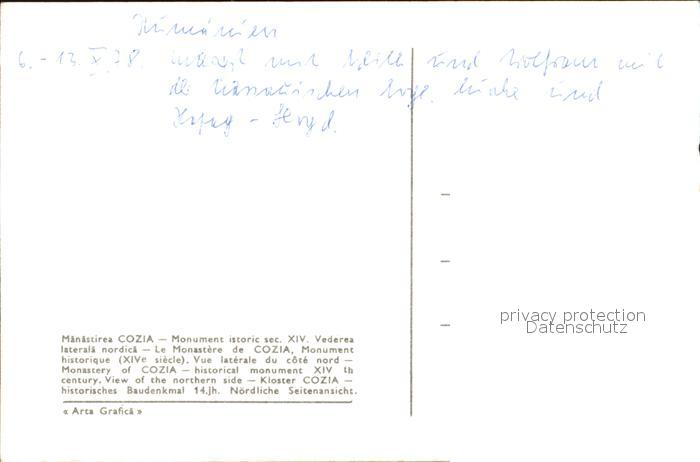 Rumänien
6. - 13. X. 78. mit und Wolfram mit
und
Mănăstirea COZIA — Monument istoric sec. XIV. Vederea
laterală nordică — Le Monastère de COZIA, Monument
historique (XIVe siècle). Vue latérale du côté nord —
Monastery of COZIA — historical monument XIV th
century. View of the northern side — Kloster COZIA —
historisches Baudenkmal 14.Jh. Nördliche Seitenansicht.
« Arta Grafică »
privacy protection
Datenschutz